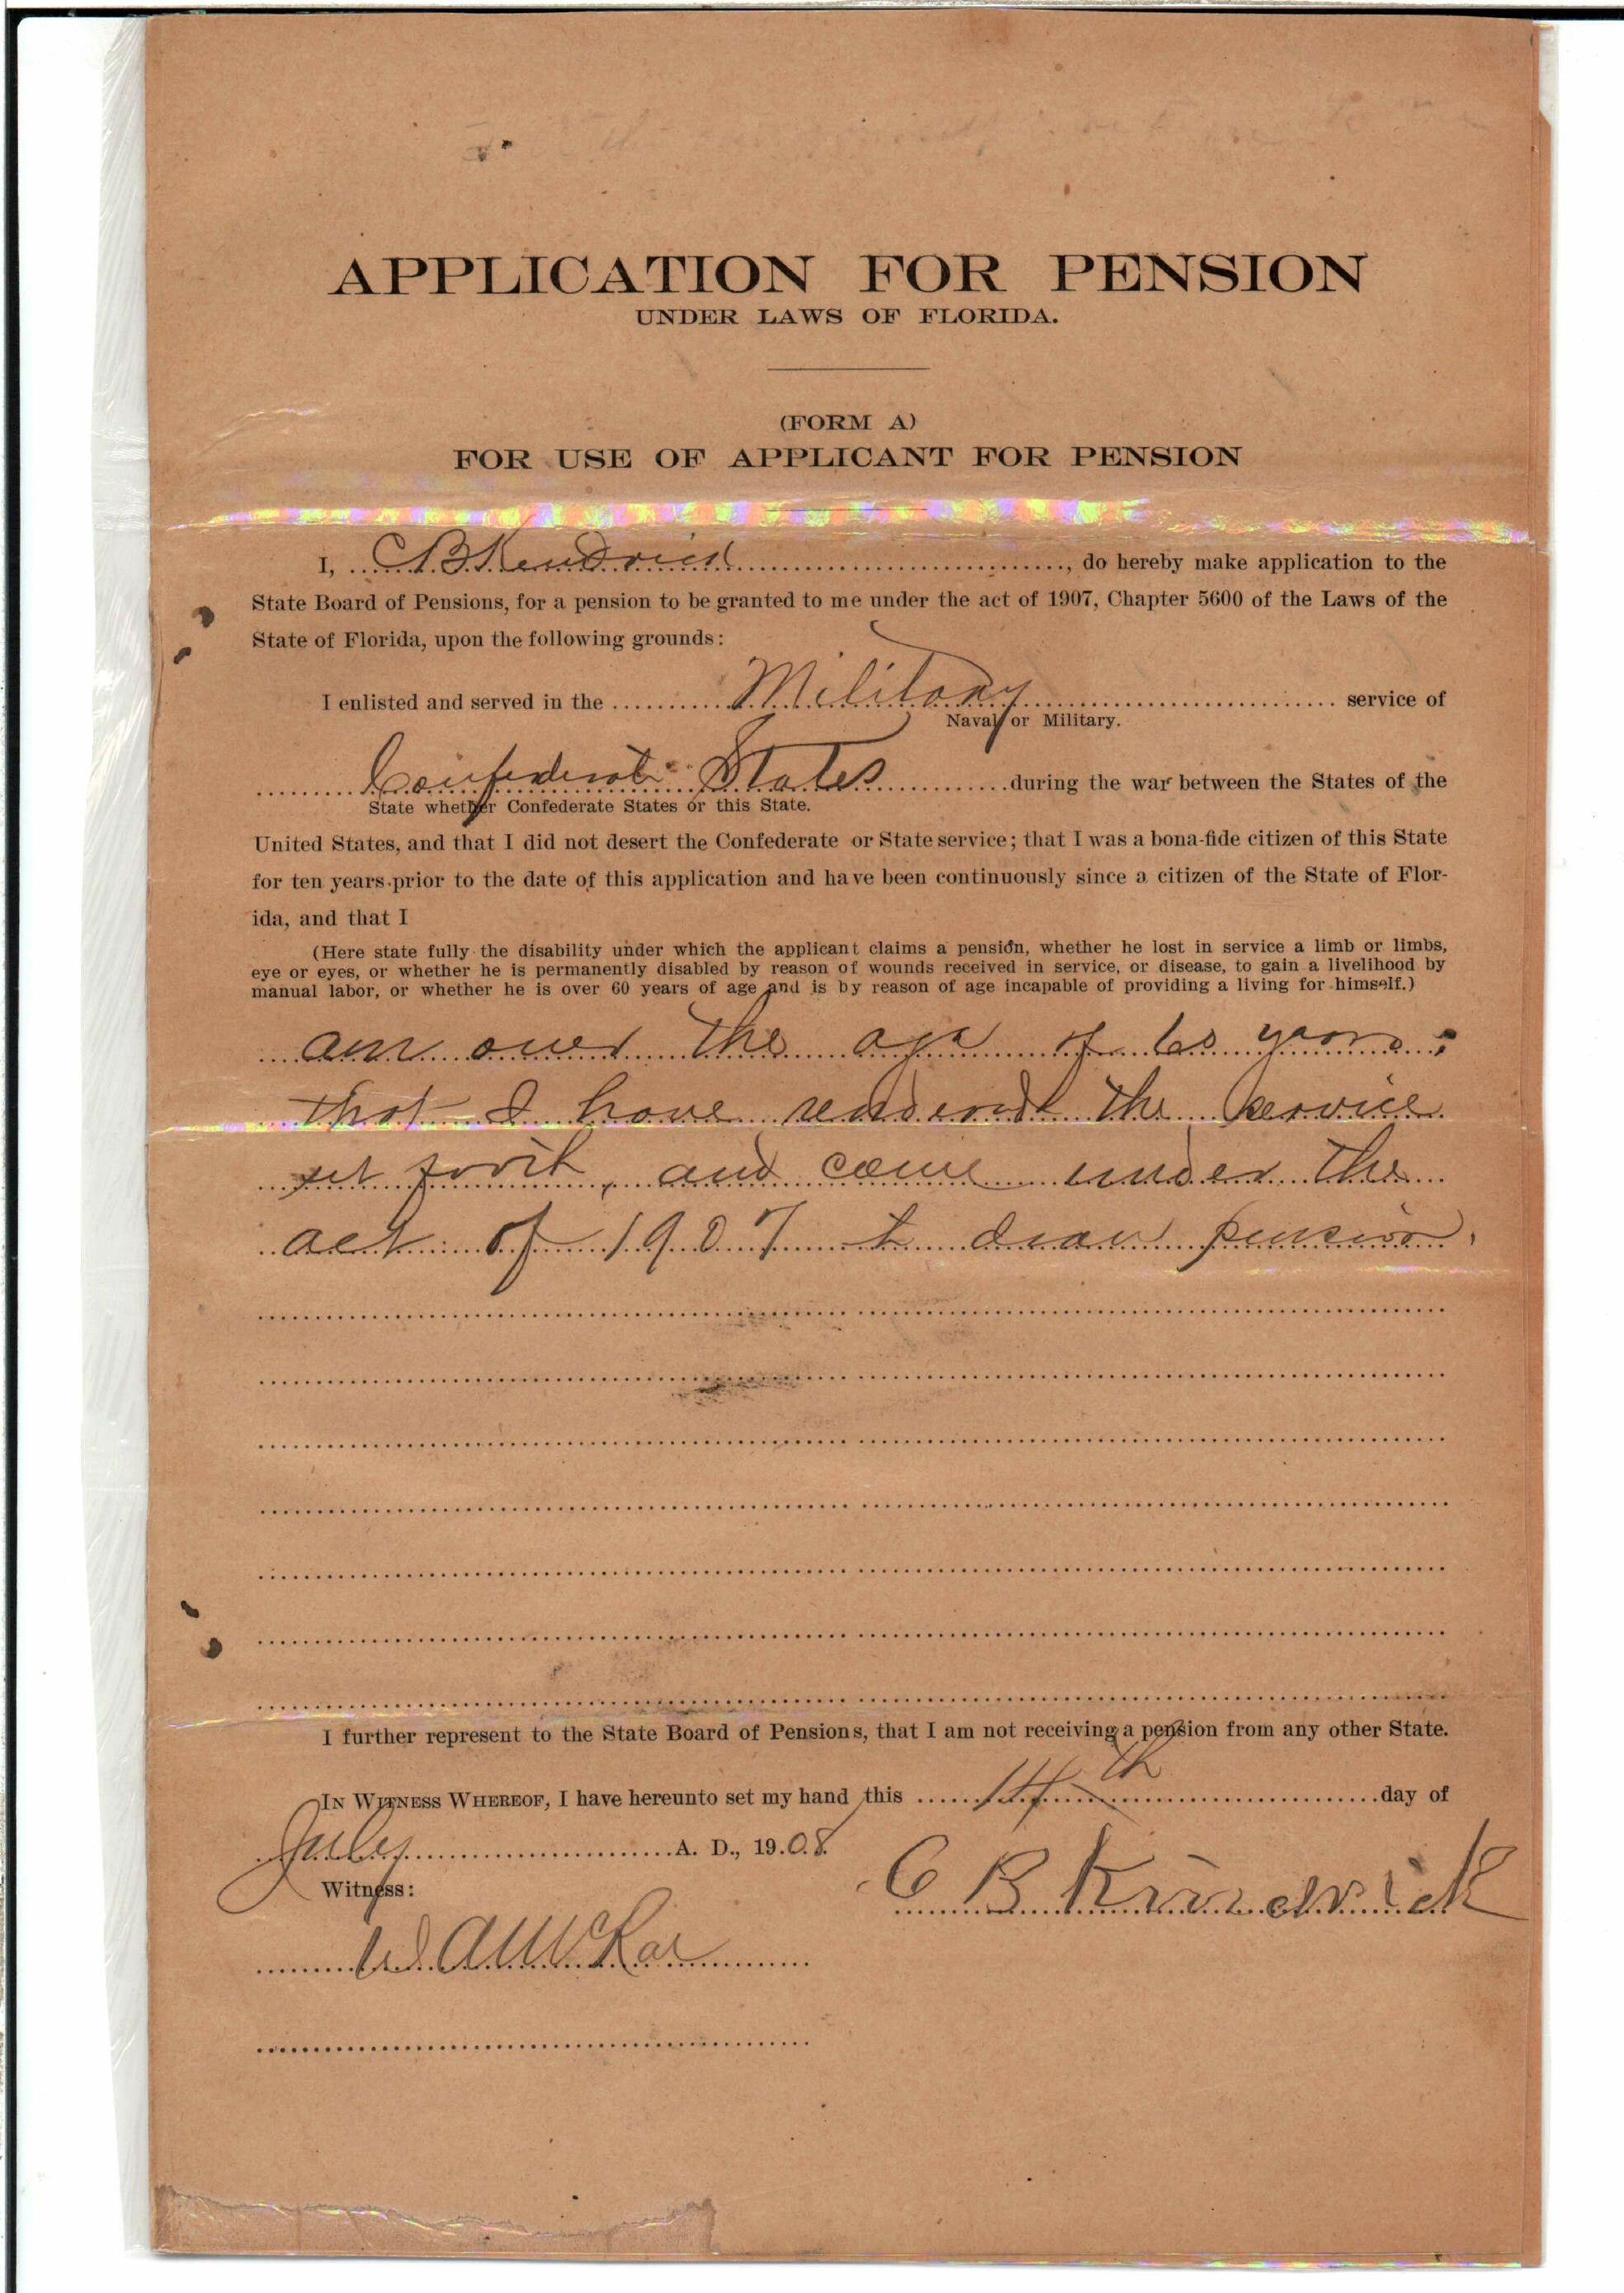 APPLICATION FOR PENSION
UNDER LAWS OF FLORIDA.
(FORM A)
FOR USE OF APPLICANT FOR PENSION
I, C B Kendrick, do hereby make application to the
State Board of Pensions, for a pension to be granted to me under the act of 1907, Chapter 5600 of the Laws of the
State of Florida, upon the following grounds:
I enlisted and served in the Military service of
Naval or Military.
Confederate States during the war between the States of the
State whether Confederate States or this State.
United States, and that I did not desert the Confederate or State service; that I was a bona-fide citizen of this State
for ten years prior to the date of this application and have been continuously since a citizen of the State of Flor-
ida, and that I
(Here state fully the disability under which the applicant claims a pension, whether he lost in service a limb or limbs,
eye or eyes, or whether he is permanently disabled by reason of wounds received in service, or disease, to gain a livelihood by
manual labor, or whether he is over 60 years of age and is by reason of age incapable of providing a living for himself.)
am over the age of 60 years;
that I have rendered the service
set forth, and come under the
act of 1907 to draw pension.
I further represent to the State Board of Pensions, that I am not receiving a pension from any other State.
IN WITNESS WHEREOF, I have hereunto set my hand this 14th day of
July A. D., 1908.
Witness:
C B Kindrick